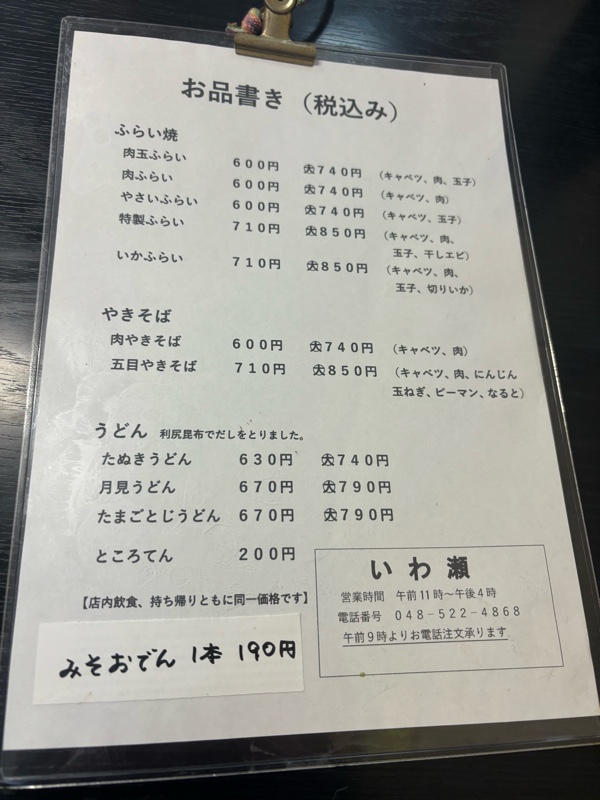 お品書き（税込み）
ふらい焼
肉玉ふらい 600円 大740円 （キャベツ、肉、玉子）
肉ふらい 600円 大740円 （キャベツ、肉）
やさいふらい 600円 大740円 （キャベツ、玉子）
特製ふらい 710円 大850円 （キャベツ、肉、
玉子、干しエビ）
いかふらい 710円 大850円 （キャベツ、肉、
玉子、切りいか）
やきそば
肉やきそば 600円 大740円 （キャベツ、肉）
五目やきそば 710円 大850円 （キャベツ、肉、にんじん
玉ねぎ、ピーマン、なると）
うどん 利尻昆布でだしをとりました。
たぬきうどん 630円 大740円
月見うどん 670円 大790円
たまごとじうどん 670円 大790円
ところてん 200円
【店内飲食、持ち帰りともに同一価格です】
みそおでん 1本 190円
いわ瀬
営業時間 午前11時～午後4時
電話番号 048－522－4868
午前9時よりお電話注文承ります